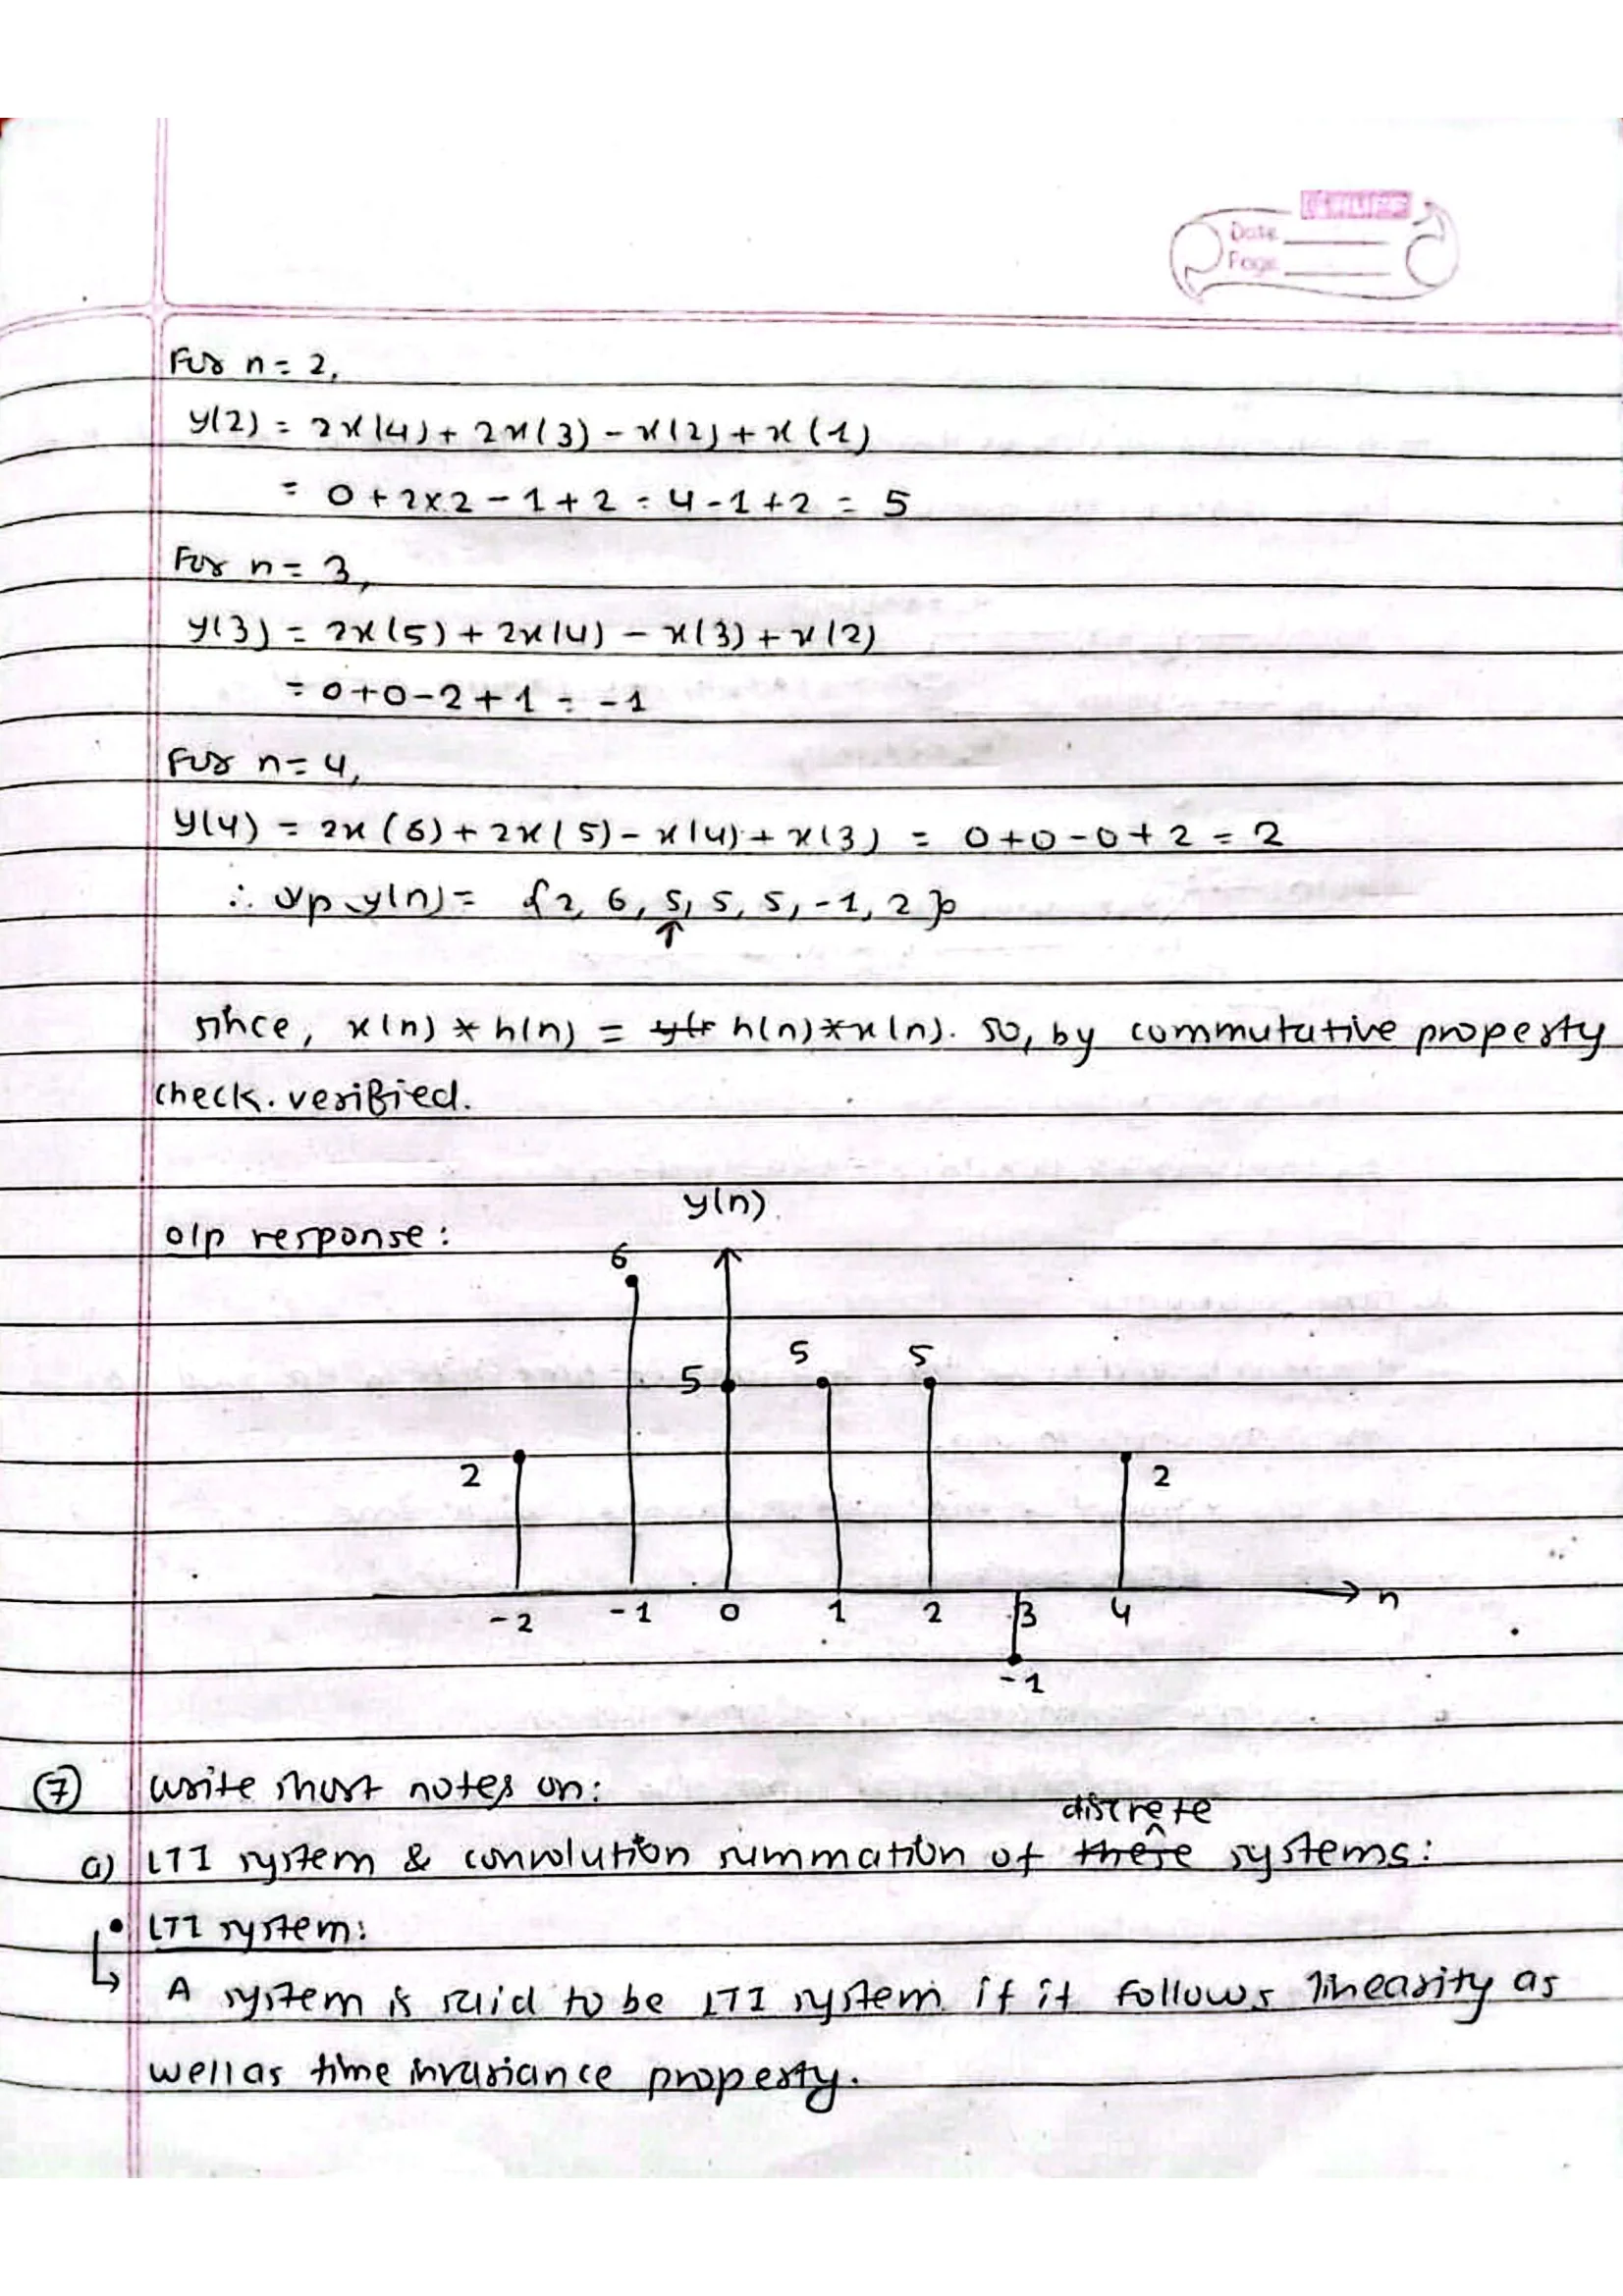 Date
Page
For n = 2,
y(2) = 2x(4) + 2x(3) - x(2) + x(1)
= 0 + 2x2 - 1 + 2 = 4 - 1 + 2 = 5
For n = 3,
y(3) = 2x(5) + 2x(4) - x(3) + x(2)
= 0+0-2+1 = -1
For n = 4,
y(4) = 2x(6) + 2x(5) - x(4) + x(3) = 0+0-0+2 = 2
∴ o/p y(n) = {2, 6, 5, 5, 5, -1, 2}
↑
since, x(n) * h(n) = h(n)*x(n). so, by commutative property
check. verified.
y(n)
o/p response:
6
5 5 5
2 2
-2 -1 0 1 2 3 4 n
-1
(7) write short notes on:
discrete
a) LTI system & convolution summation of these systems:
• LTI system:
↳ A system is said to be LTI system if it follows linearity as
well as time invariance property.